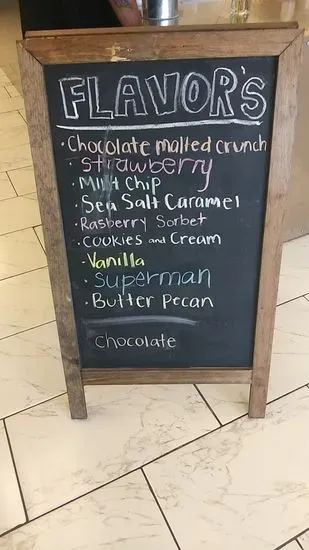 FLAVOR'S
· Chocolate malted crunch
· Strawberry
· Mint Chip
· Sea Salt Caramel
· Rasberry Sorbet
· Cookies and Cream
· Vanilla
· Superman
· Butter Pecan
Chocolate